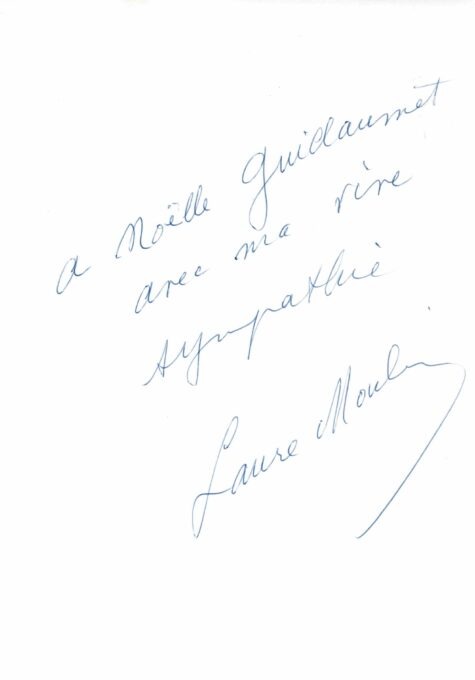 a Noëlle Guillaumet
avec ma vive
sympathie
Laure Moulin